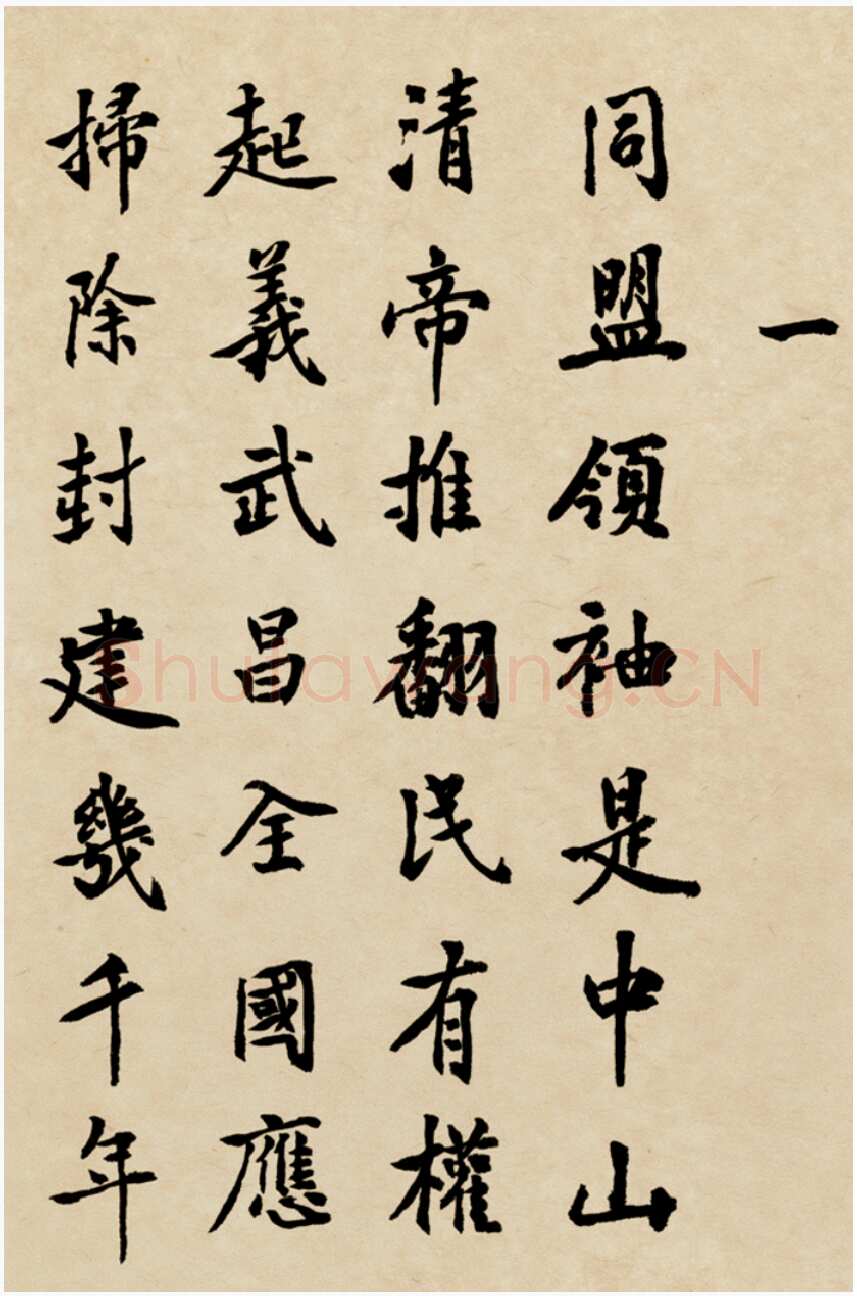 一
同盟領袖是中山
清帝推翻民有權
起義武昌全國應
掃除封建幾千年
Shufawang.CN